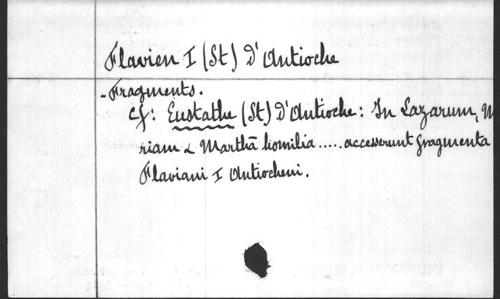 Flavien I (St) D'Antioche
- Fragments.
cf: Eustathe (St) D'Antioche: In Lazarum, M
riam & Marthā homilia ..... accesserunt fragmenta
Flaviani I Antiocheni.